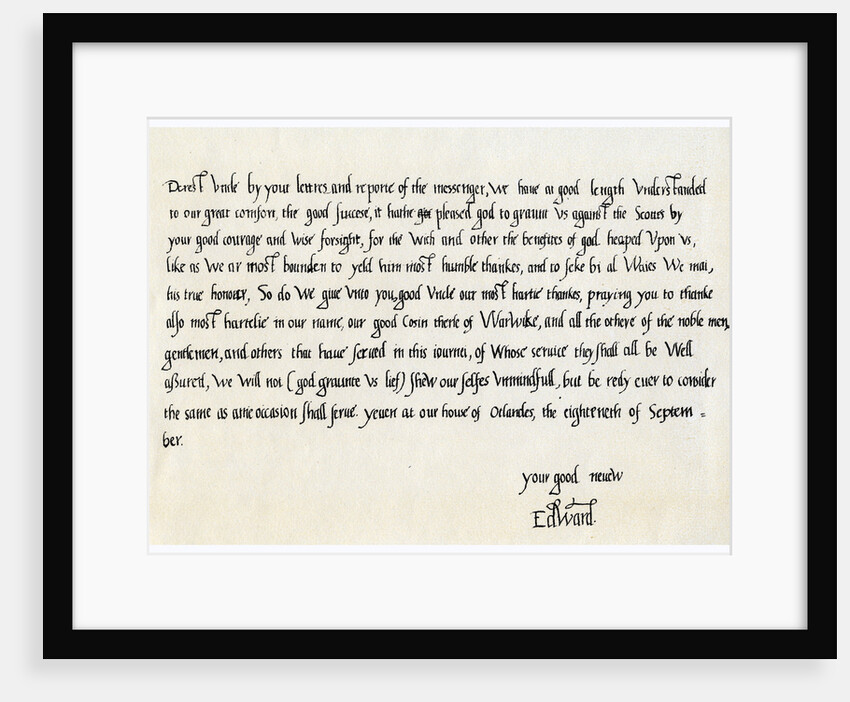 Derest Vncle by your lettres and reporte of the messenger, we haue at good length vnderstanded
to our great comfort, the good succese, it hathe pleased god to graunt vs against the Scottes by
your good courage and wise forsight, for the wich and other the benefites of god heaped vpon vs,
like as we ar most bounden to yeld him most humble thankes, and to seke bi al waies we mai,
his true honour, So do we giue vnto you, good Vncle our most hartie thankes, praying you to thanke
also most hartelie in our name, our good Cosin therle of Warwike, and all the othere of the noble men,
gentlemen, and others that haue serued in this iournei, of whose seruice they shall all be well
assured, we will not (god graunte vs lief) shew our selfes vnmindfull, but be redy euer to consider
the same as anie occasion shall serue. yeuen at our house of Otlandes, the eighteneth of Septem =
ber.
your good neuew
Edward.